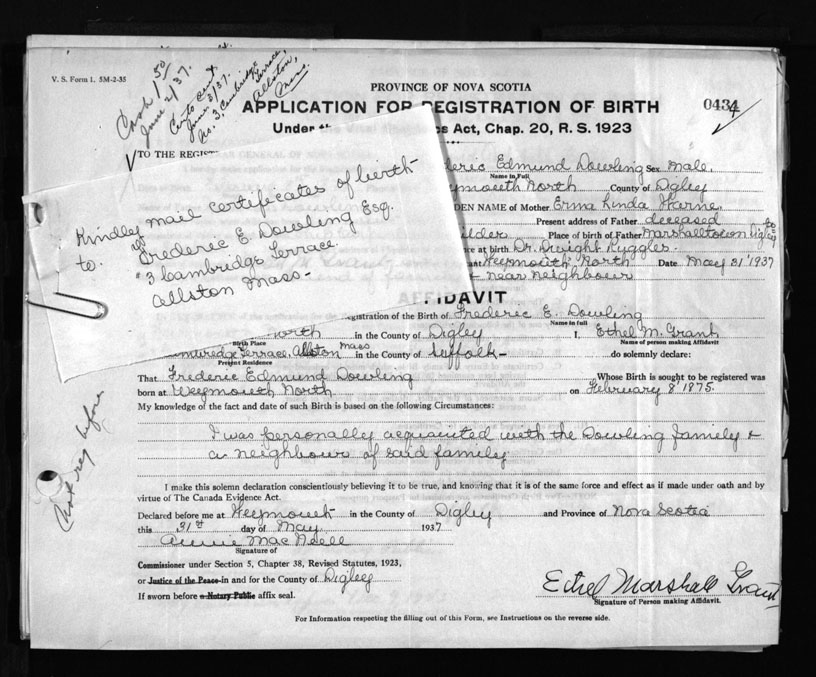 V. S. Form 1. 5M-2-35
Cash 1.50
June 2/37.
June 3/37.
No. 3, Cambridge
Terrace,
Allston,
Mass.
PROVINCE OF NOVA SCOTIA
APPLICATION FOR REGISTRATION OF BIRTH
0434
Under Act, Chap. 20, R. S. 1923
TO THE
Kindly mail certificates of birth
to. Frederic E. Dowling Esq.
#3 Cambridge Terrace
Allston Mass-
deric Edmund Dowling Sex Male.
Name in Full
eymouth North County of Digby
DEN NAME of Mother Erma Linda
Present address of Father deceased
ilder Place of birth of Father Marshalltown Digby Co
ce at birth Dr. Dwight Ruggles.
ant Weymouth North Date May 31' 1937
& near neighbour
AFFIDAVIT
egistration of the Birth of Frederic E. Dowling
Name in full
orth in the County of Digby I, Ethel M. Grant
Birth Place
Name of person making Affidavit
Terrace, Allston Mass in the County of Suffolk- do solemnly declare:
Present Residence
That Frederic Edmund Dowling Whose Birth is sought to be registered was
born at Weymouth North on February 8' 1875.
My knowledge of the fact and date of such Birth is based on the following Circumstances:
Not reg before
I was personally acquainted with the Dowling family &
a neighbour of said family
I make this solemn declaration conscientiously believing it to be true, and knowing that it is of the same force and effect as if made under oath and by
virtue of The Canada Evidence Act.
Declared before me at Weymouth in the County of Digby and Province of Nova Scotia
this 31st day of May 1937
Annie MacNeill
Signature of
Commissioner under Section 5, Chapter 38, Revised Statutes, 1923,
or Justice of the Peace in and for the County of Digby
If sworn before a Notary Public affix seal.
Ethel Marshall Grant
Signature of Person making Affidavit.
For Information respecting the filling out of this Form, see Instructions on the reverse side.